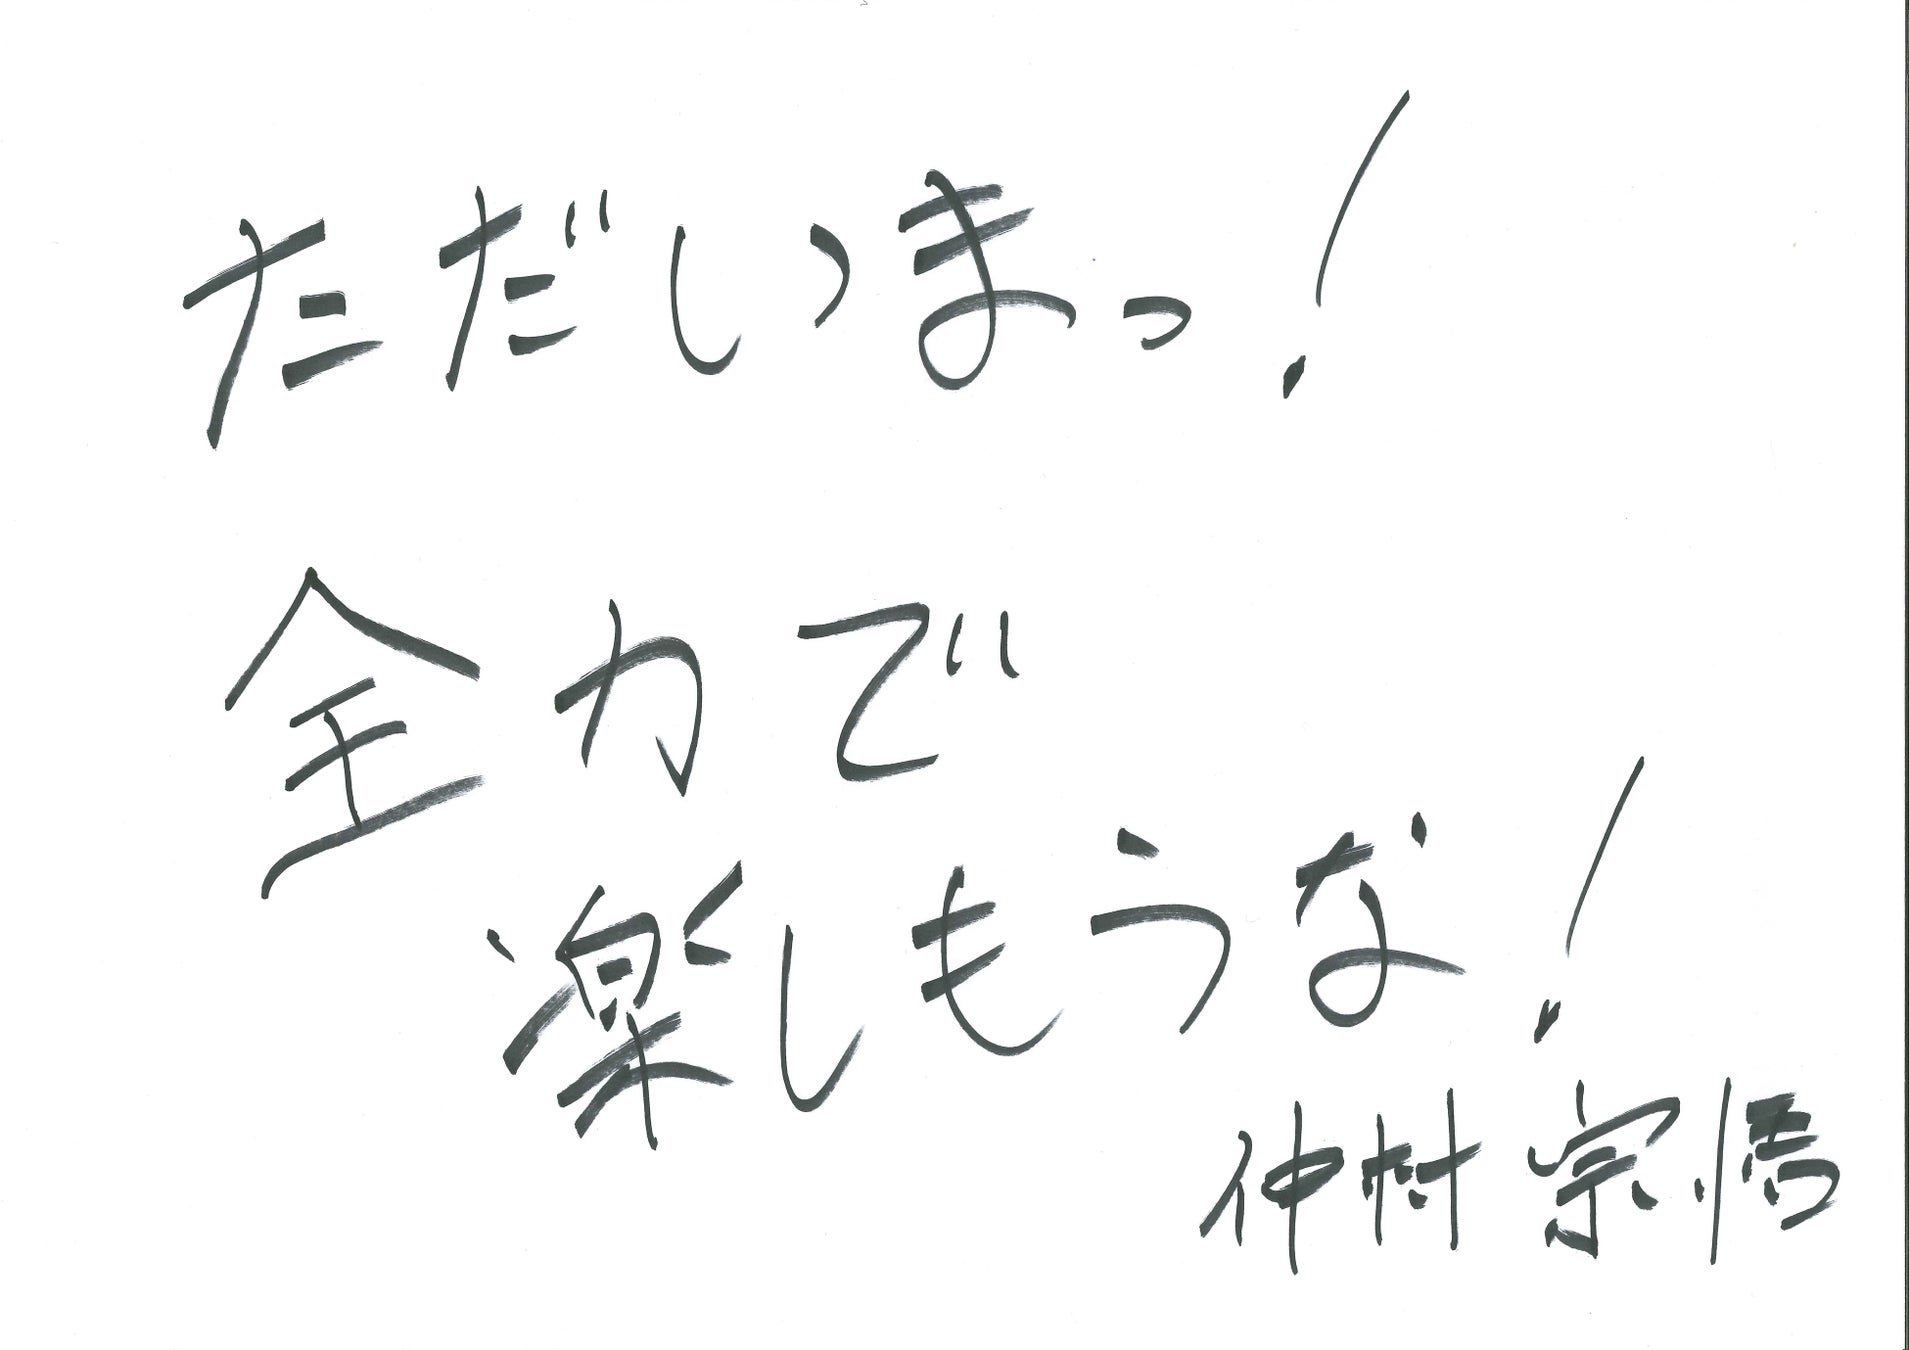 ただいまっ!
全力で
楽しもうな!
仲村宗悟